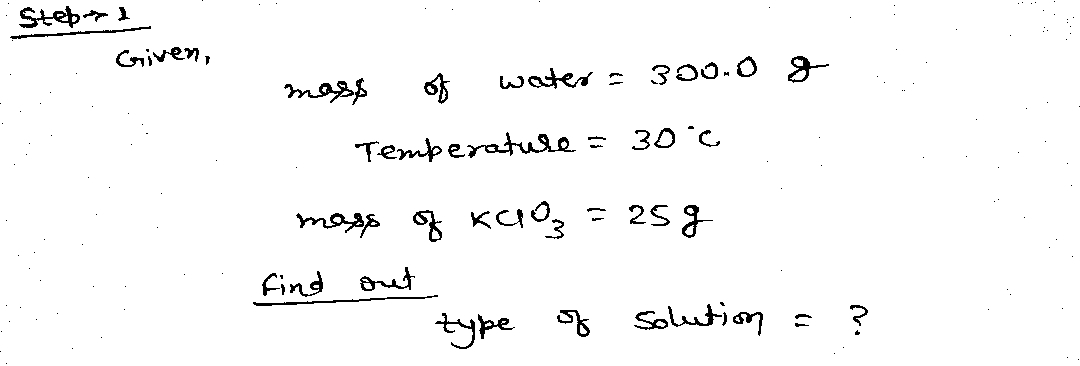 Step→1
Given,
mass of water = 300.0 g
Temperature = 30°C
mass of KClO₃ = 25 g
find out
type of solution = ?